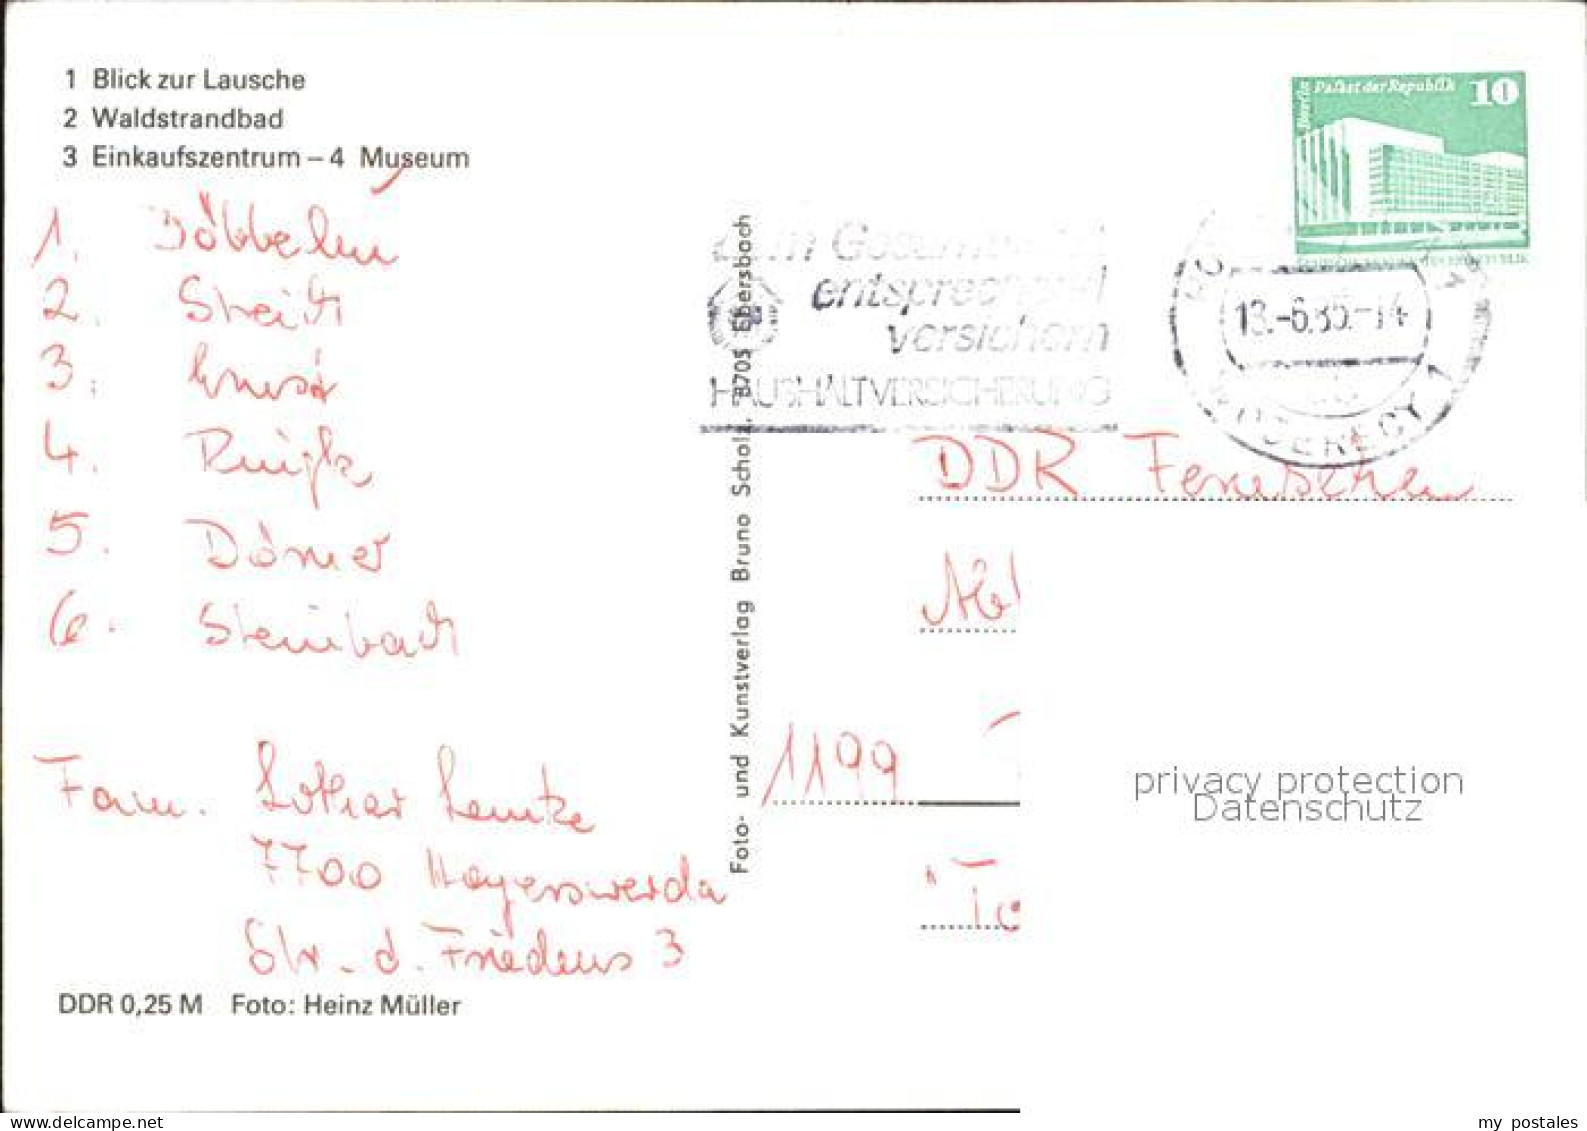 1 Blick zur Lausche
2 Waldstrandbad
3 Einkaufszentrum – 4 Museum
Berlin Palast der Republik 10
1. Döbbelin
2. Streich
3.
4.
5. Dörner
6. Steinbach
Fam. Lothar Lemke
7700 Hoyerswerda
Str. d. Friedens 3
DDR 0,25 M Foto: Heinz Müller
Foto- und Kunstverlag Bruno Scholz, 8705 Ebersbach
entsprechend
versichern
HAUSHALTVERSICHERUNG
13.-6.85.-14
HOYERSWERDA 1
DDR Fernsehen
1199
privacy protection
Datenschutz
my postales
www.delcampe.net